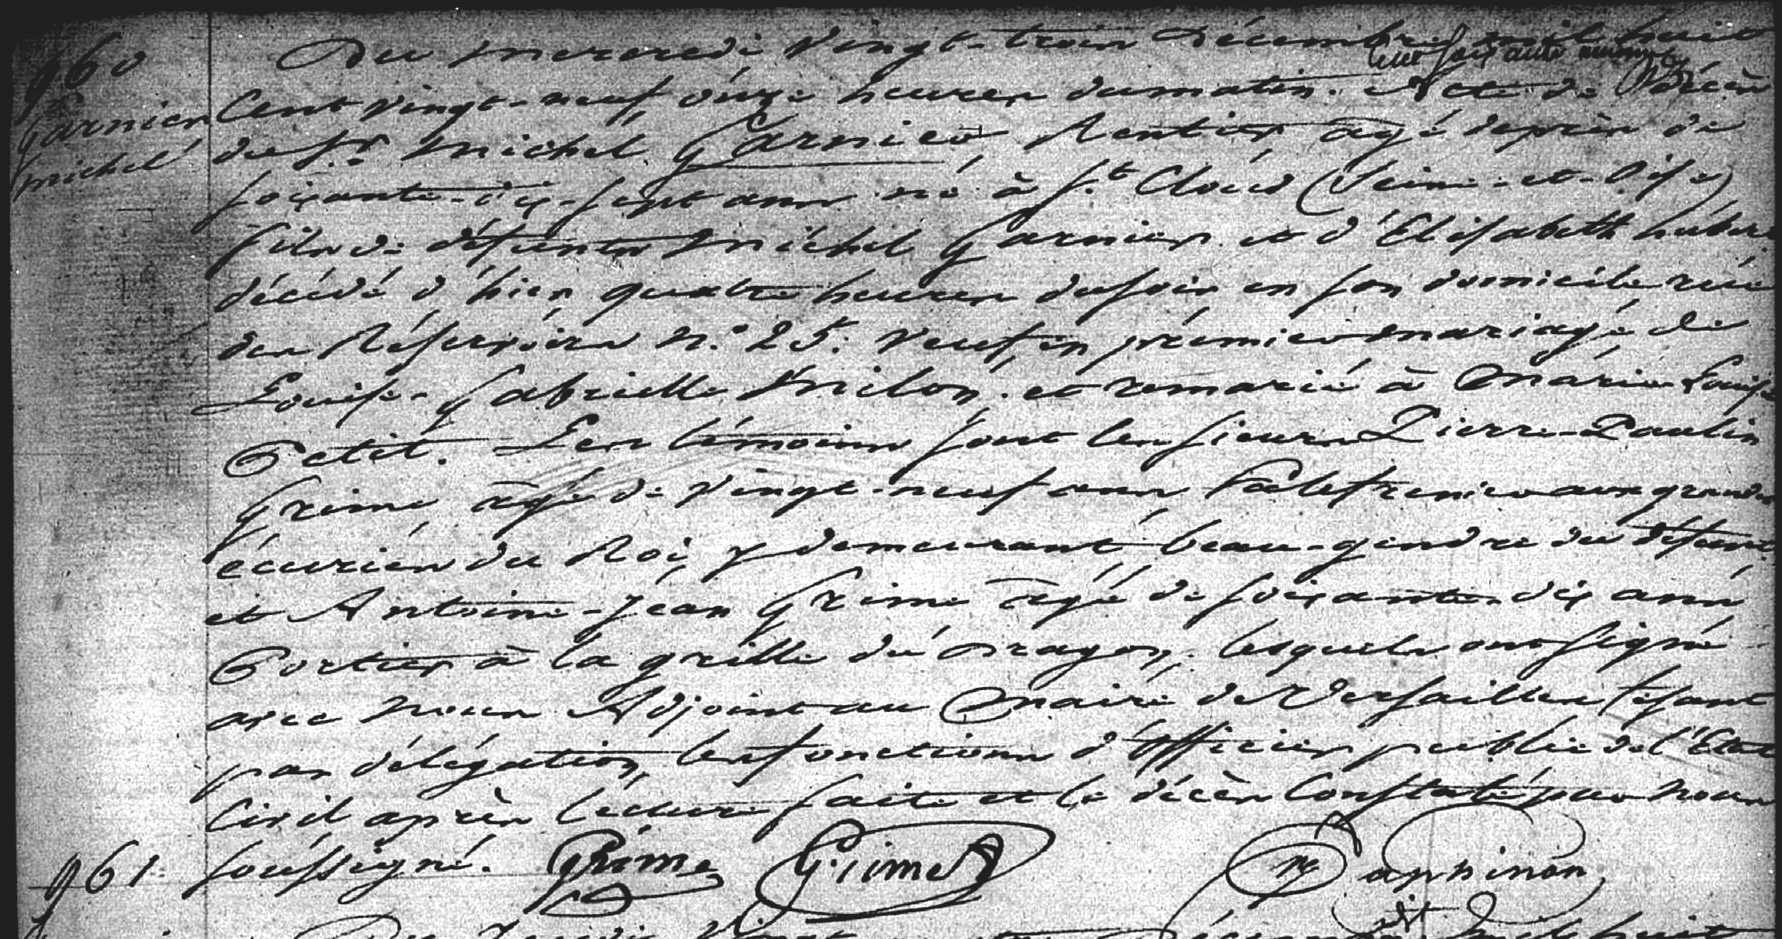 960
Garnier
Michel
Du mercredi vingt-trois Décembre mil huit
Cent vingt-neuf onze heures du matin. Acte de Décès
du Sr. Michel Garnier Rentier âgé de près de
soixante-dix-sept ans né à St. Cloud (Seine-et-Oise)
fils de défunts Michel Garnier et d'Elisabeth hubert
décédé d'hier quatre heures du soir en son domicile rüe
des Réservoirs n.° 25. veuf en premier mariage de
Louise-Gabrielle Milon. et remarié à Marie Louise
Petit. Les témoins sont les sieurs Pierre-Paulin
Grime âgé de vingt-neuf ans Palefrenier aux grandes
écuries du Roi, y demeurant beau-gendre du défunt
et Antoine-Jean Grime âgé de soixante-dix ans
Portier à la grille du Dragon, lesquels ont signé
avec nous Adjoint au Maire de Versailles fesant
par délégation les fonctions d'officier public de l'Etat
Civil après lecture faite et le décès Constaté par nous
soussigné. Grime Grime
961